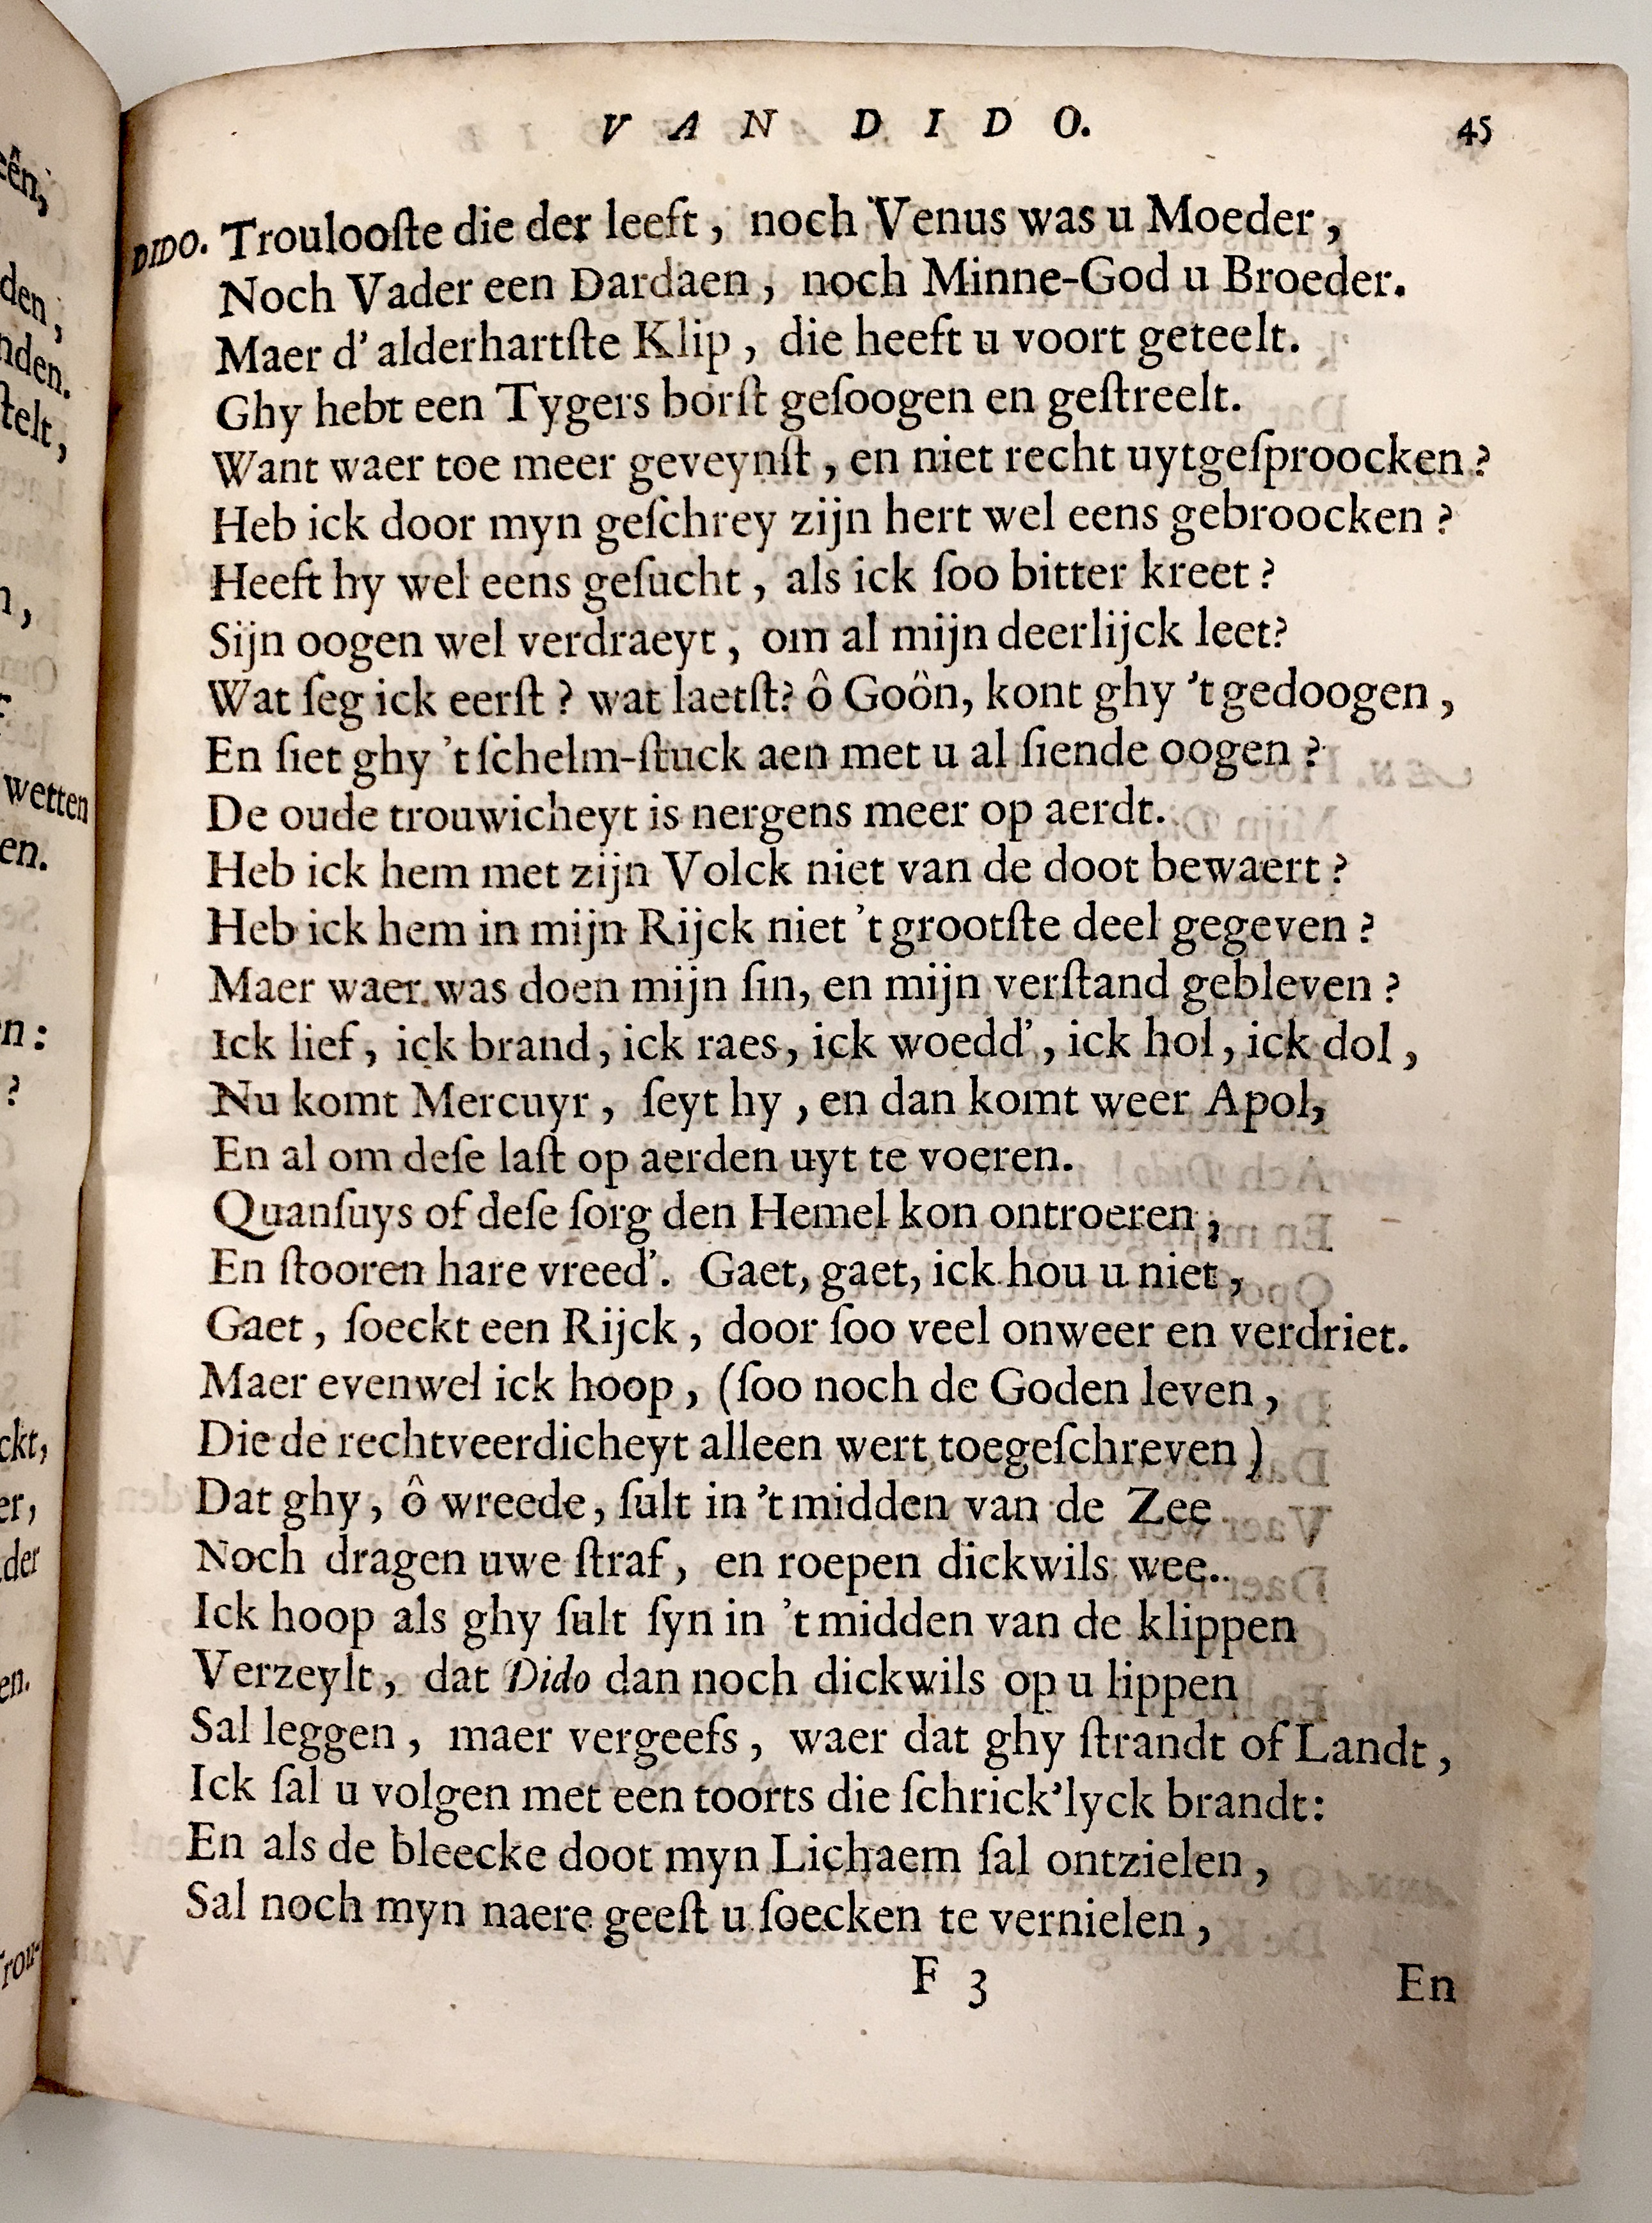 VAN DIDO. 45
DIDO. Troulooſte die der leeft, noch Venus was u Moeder,
Noch Vader een Dardaen, noch Minne-God u Broeder.
Maer d' alderhartſte Klip, die heeft u voort geteelt.
Ghy hebt een Tygers borſt geſoogen en geſtreelt.
Want waer toe meer geveynſt, en niet recht uytgeſproocken?
Heb ick door myn geſchrey zijn hert wel eens gebroocken?
Heeft hy wel eens geſucht, als ick ſoo bitter kreet?
Sijn oogen wel verdraeyt, om al mijn deerlijck leet?
Wat ſeg ick eerſt? wat laetſt? ô Goön, kont ghy 't gedoogen,
En ſiet ghy 't ſchelm-ſtuck aen met u al ſiende oogen?
De oude trouwicheyt is nergens meer op aerdt.
Heb ick hem met zijn Volck niet van de doot bewaert?
Heb ick hem in mijn Rijck niet 't grootſte deel gegeven?
Maer waer was doen mijn ſin, en mijn verſtand gebleven?
Ick lief, ick brand, ick raes, ick woedd', ick hol, ick dol,
Nu komt Mercuyr, ſeyt hy, en dan komt weer Apol,
En al om deſe laſt op aerden uyt te voeren.
Quanſuys of deſe ſorg den Hemel kon ontroeren,
En ſtooren hare vreed'. Gaet, gaet, ick hou u niet,
Gaet, ſoeckt een Rijck, door ſoo veel onweer en verdriet.
Maer evenwel ick hoop, (ſoo noch de Goden leven,
Die de rechtveerdicheyt alleen wert toegeſchreven)
Dat ghy, ô wreede, ſult in 't midden van de Zee
Noch dragen uwe ſtraf, en roepen dickwils wee..
Ick hoop als ghy ſult ſyn in 't midden van de klippen
Verzeylt, dat Dido dan noch dickwils op u lippen
Sal leggen, maer vergeefs, waer dat ghy ſtrandt of Landt,
Ick ſal u volgen met een toorts die ſchrick'lyck brandt:
En als de bleecke doot myn Lichaem ſal ontzielen,
Sal noch myn naere geeſt u ſoecken te vernielen,
F 3 En
wetten